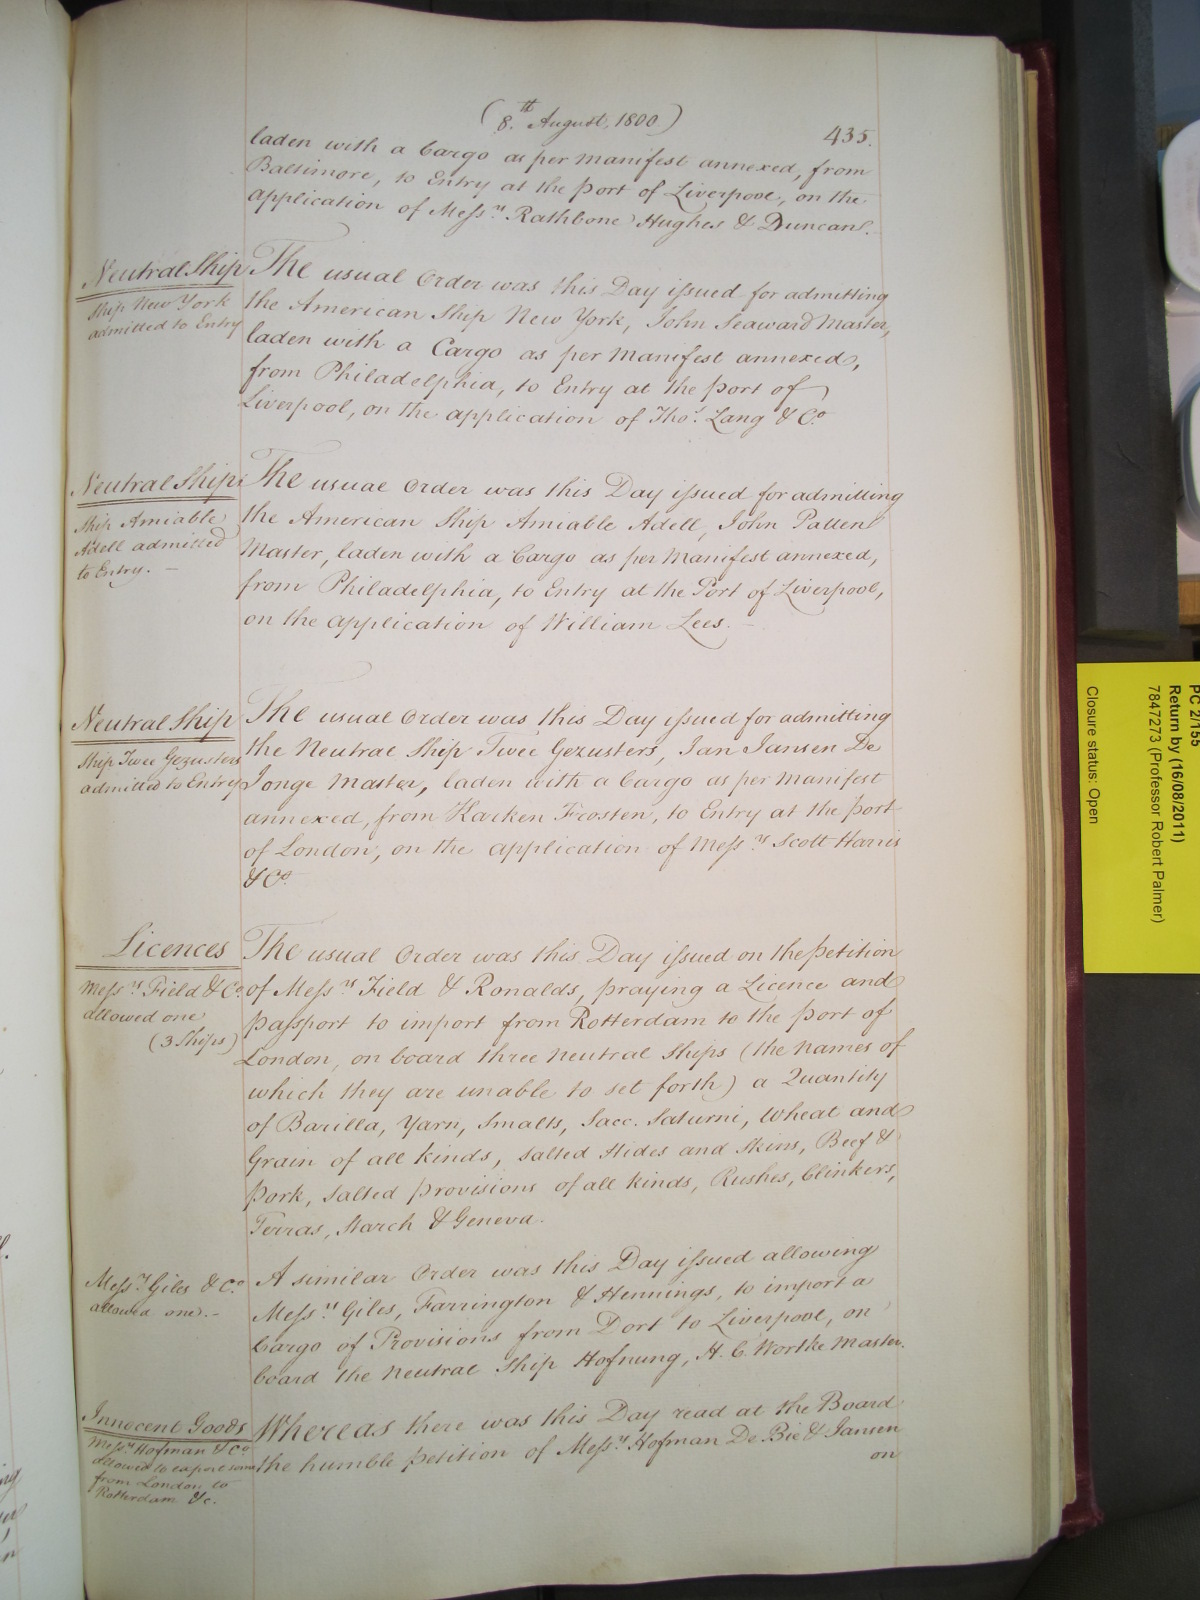 (8.th August, 1800)
435.
laden with a Cargo as per Manifest annexed, from
Baltimore, to Entry at the Port of Liverpool, on the
application of Messrs Rathbone Hughes & Duncan.
Neutral Ship
Ship New York
admitted to Entry
The usual Order was this Day issued for admitting
the American Ship New York, John Seaward Master,
laden with a Cargo as per Manifest annexed,
from Philadelphia, to Entry at the Port of
Liverpool, on the application of Thos. Lang & Co.
Neutral Ship
Ship Amiable
Adell admitted
to Entry. -
The usual Order was this Day issued for admitting
the American Ship Amiable Adell, John Patten
Master, laden with a Cargo as per Manifest annexed,
from Philadelphia, to Entry at the Port of Liverpool,
on the application of William Lees. -
Neutral Ship
Ship Twee Gezusters
admitted to Entry
The usual Order was this Day issued for admitting
the Neutral Ship Twee Gezusters, Jan Jansen De
Jonge Master, laden with a Cargo as per Manifest
annexed, from Karken Frosten, to Entry at the Port
of London, on the application of Messrs Scott Harris
& Co.
Licences
Messrs Field & Co.
allowed one
(3 Ships)
The usual Order was this Day issued on the Petition
of Messrs Field & Ronalds, praying a Licence and
Passport to import from Rotterdam to the Port of
London, on board three Neutral Ships (the Names of
which they are unable to set forth) a Quantity
of Barilla, Yarn, Smalts, Sacc. Saturni, Wheat and
Grain of all kinds, Salted Hides and Skins, Beef &
Pork, Salted Provisions of all kinds, Rushes, Clinkers,
Terras, Starch & Geneva.
Messrs Giles & Co.
allowed one. -
A similar Order was this Day issued allowing
Messrs Giles, Farrington & Hennings, to import a
Cargo of Provisions from Dort to Liverpool, on
board the Neutral Ship Hofnung, H. C. Wortke Master.
Innocent Goods
Messrs Hofman & Co
allowed to export some
from London to
Rotterdam &c.
Whereas there was this Day read at the Board
the humble Petition of Messrs Hofman De Bie & Jansen
on
PC 2/155
Return by (16/08/2011)
7847273 (Professor Robert Palmer)
Closure status: Open